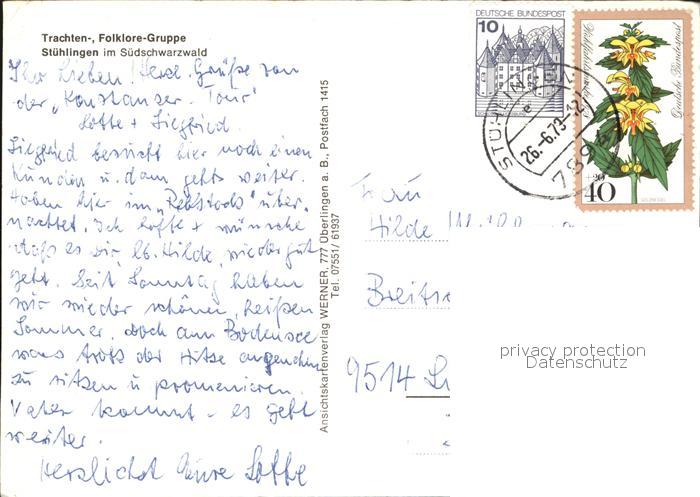 Trachten-, Folklore-Gruppe
Stühlingen im Südschwarzwald
Ihr Lieben! Herzl. Grüße von
der "Konstanzer-Tour"
Lotte + Siegfried.
Siegfried besucht hier noch einen
Kunden u. dann gehts weiter.
Haben hier im "Rebstock" über-
nachtet. Ich hoffe + wünsche
daß es Dir, lb. Hilde, wieder gut
geht. Seit Sonntag haben
wir wieder schönen, heißen
Sommer, doch am Bodensee
wars trotz der Hitze angenehm
zu sitzen u promenieren.
Vater kommt - es geht
weiter.
Herzlichst Eure Lotte
Ansichtskartenverlag WERNER, 777 Überlingen a. B., Postfach 1415
Tel. 07551/ 61937
DEUTSCHE BUNDESPOST
10
Deutsche Bundespost
+20
40
STÜHLINGEN
26.-6.79-12
789
Frau
Hilde
9514
privacy protection
Datenschutz